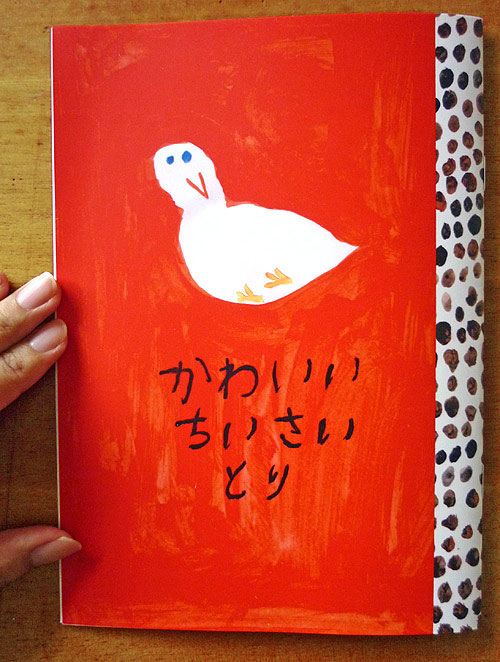 かわいい
ちいさい
とり